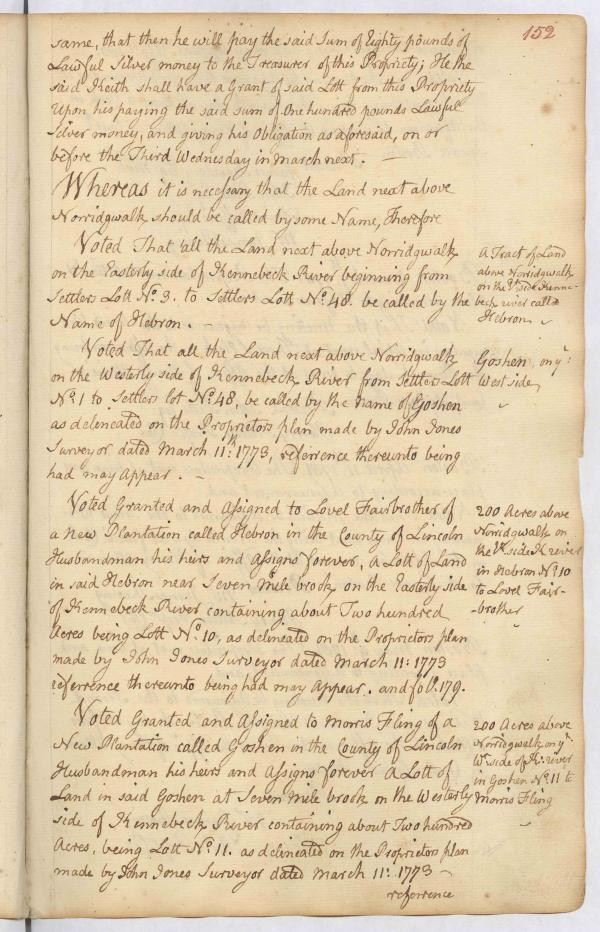 152
same, that then he will pay the said Sum of Eighty pounds of
Lawful Silver money to the Treasurer of this Propriety; He the
said Keith shall have a Grant of said Lott from this Propriety
Upon his paying the said sum of One hundred pounds Lawful
Silver money, and giving his Obligation as aforesaid, on or
before the Third Wednesday in March next. —
Whereas it is necessary that the Land next above
Norridgwalk should be called by some Name, Therefore
Voted That all the Land next above Norridgwalk
on the Easterly side of Kennebeck River beginning from
Settlers Lott No. 3. to Settlers Lott No. 48. be called by the
Name of Hebron. —
A Tract of Land
above Norridgwalk
on the Et. side Kenne-
beck river called
Hebron
Voted That all the Land next above Norridgwalk
on the Westerly side of Kennebeck River from Settlers Lott
No. 1 to Settlers lot No. 48, be called by the name of Goshen
as delineated on the Proprietors plan made by John Jones
Surveyor dated March 11th. 1773, referrence thereunto being
had may Appear. —
Goshen, on ye.
West side,
Voted Granted and Assigned to Lovel Fairbrother of
a New Plantation called Hebron in the County of Lincoln
Husbandman his heirs and Assigns forever, A Lott of Land
in said Hebron near Seven Mile brook on the Easterly side
of Kennebeck River containing about Two hundred
Acres being Lott No. 10, as delineated on the Proprietors plan
made by John Jones Surveyor dated March 11: 1773
referrence thereunto being had may Appear. and fol. 179.
200 Acres above
Norridgwalk on
the Et. side K. river
in Hebron No. 10
to Lovel Fair-
-brother
Voted Granted and Assigned to Morris Fling of a
New Plantation called Goshen in the County of Lincoln
Husbandman his heirs and Assigns forever A Lott of
Land in said Goshen at Seven Mile brook on the Westerly
side of Kennebeck River containing about Two hundred
Acres, being Lott No. 11. as delineated on the Proprietors plan
made by John Jones Surveyor dated March 11: 1773 —
referrence
200 Acres above
Norridgwalk on ye.
Wt. side of K: river
in Goshen No. 11 to
Morris Fling